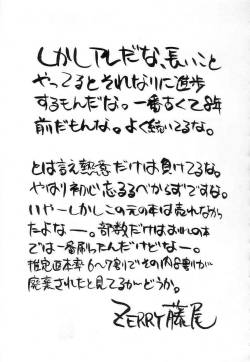 しかしアレだな、長いこと
やってるとそれなりに進歩
するもんだな。一番古くて8年
前だもんな。よく続いてるな。
とは言え熱意だけは負けてるな。
やはり初心忘るるべからずですな。
いやーしかしこの元の年は売れなかっ
たよなー。部数だけはおれの本
では一番刷ったんだけどなー。
推定直本率6〜7割でその内8割が
廃棄されたと見てるがーどうか。
ZERRY藤尾